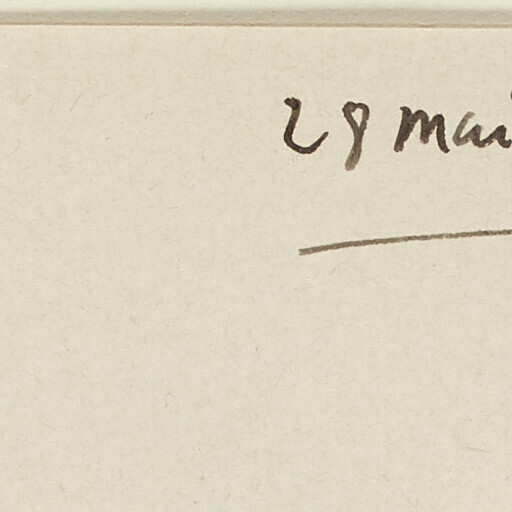 28 mai